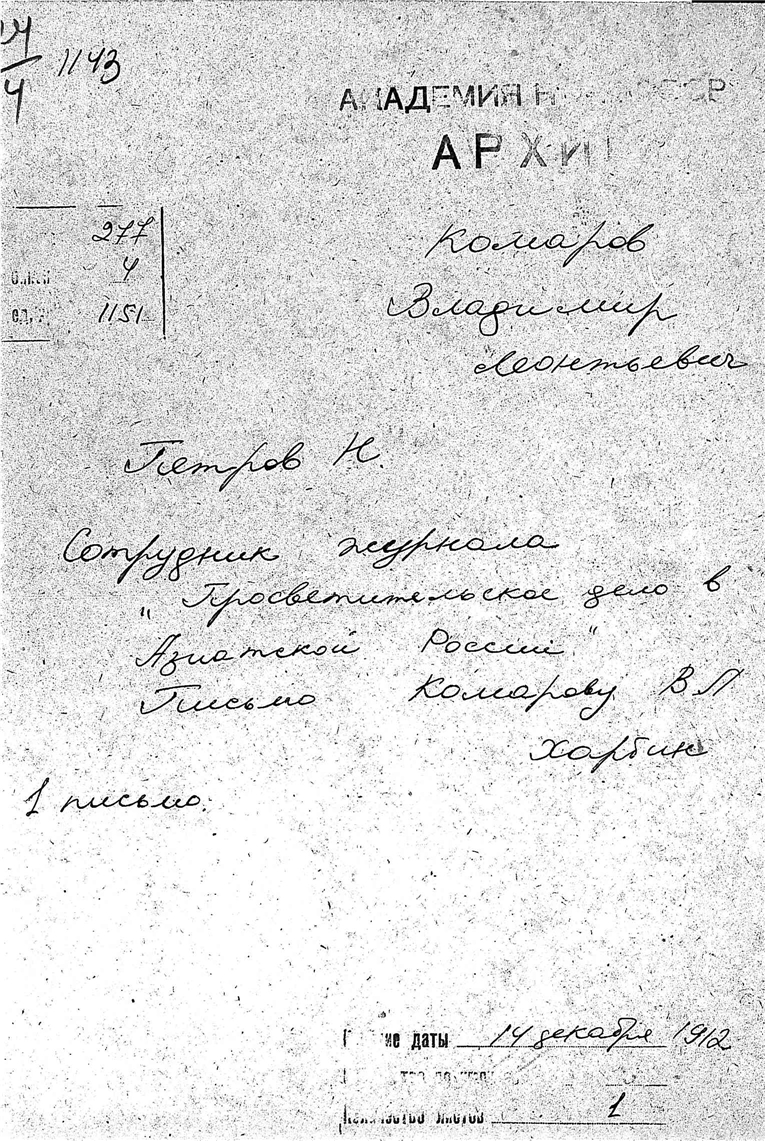 1143
4
АКАДЕМИЯ Н СССР
АРХИ
277
4
ед. 1151
Комаров
Владимир
Леонтьевич
Петров Н.
Сотрудник журнала
„Просветительское дело в
Азиатской России"
Письмо Комарову В Л
Харбин
1 письмо.
даты 14 декабря 1912
Количество листов 1